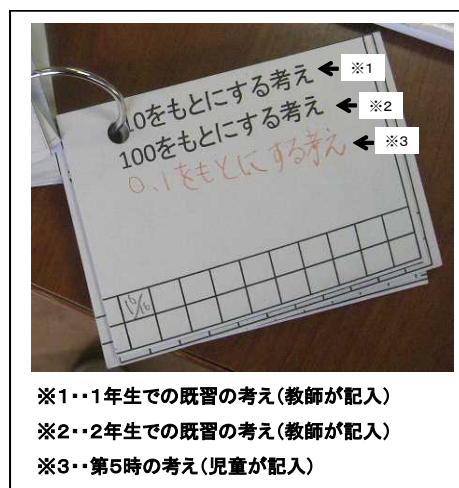 10をもとにする考え ※1
100をもとにする考え ※2
0.1をもとにする考え ※3
10/16
※1‥1年生での既習の考え(教師が記入)
※2‥2年生での既習の考え(教師が記入)
※3‥第5時の考え(児童が記入)